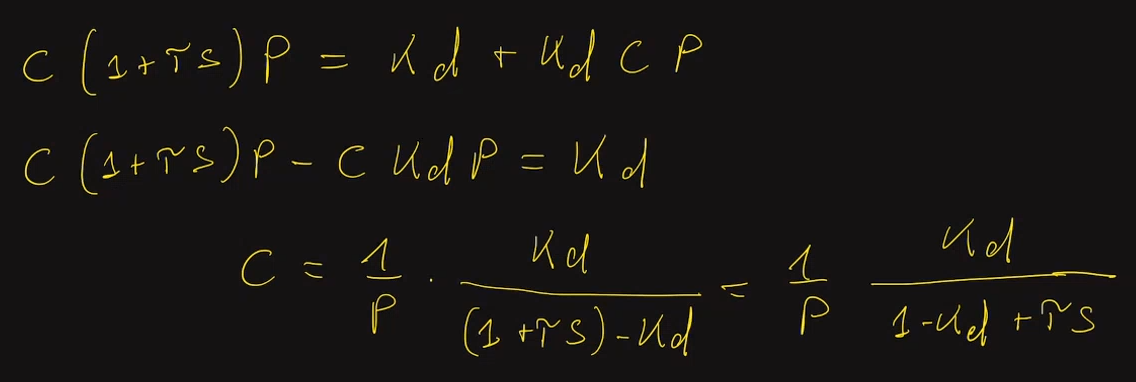 C (1+τs) P = Kd + Kd C P
C (1+τs) P - C Kd P = Kd
C = 1/P · Kd/((1+τs)-Kd) = 1/P Kd/(1-Kd+τs)